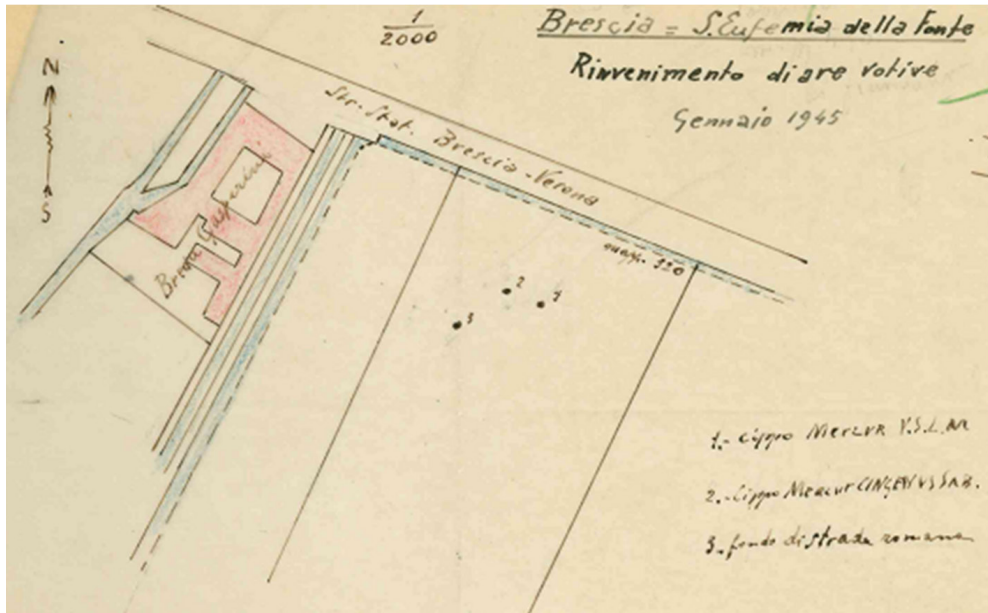 1
2000
Brescia = S. Eufemia della Fonte
Rinvenimento di are votive
Gennaio 1945
N
S
Str. Stat. Brescia-Verona
Breda
mapp. 320
2
1
3
1.- Cippo MERCUR V.S.L.M
2.- Cippo MERCUR
3. fondo di strada romana